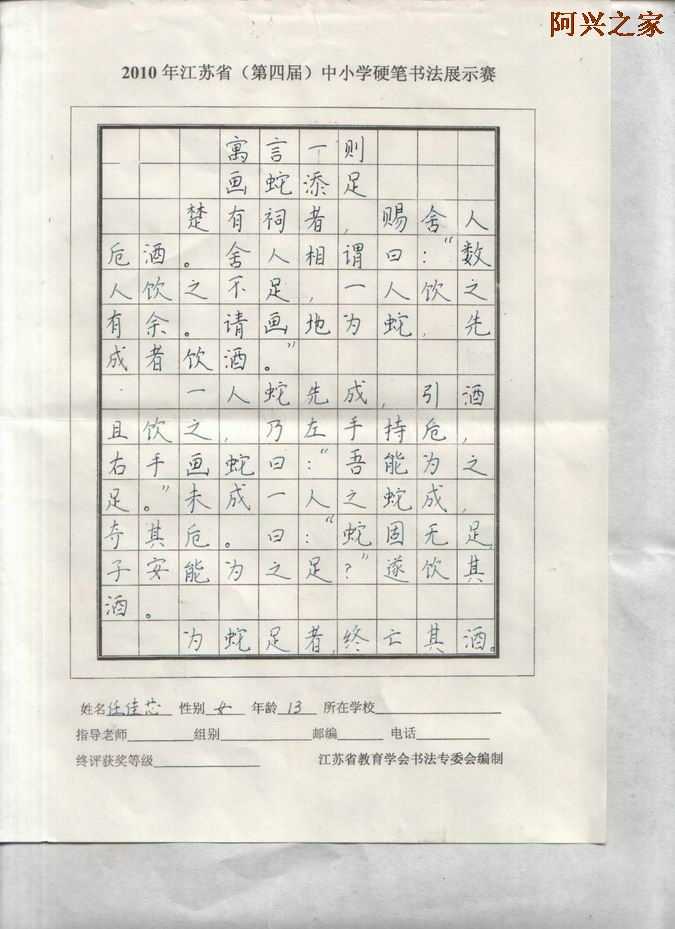 阿兴之家
2010年江苏省（第四届）中小学硬笔书法展示赛
寓言一则
画蛇添足
楚有祠者，赐舍人
卮酒。舍人相谓曰：“数
人饮之不足，一人饮之
有余。请画地为蛇，先
成者饮酒。”
一人蛇先成，引酒
且饮之，乃左手持卮，
右手画蛇曰：“吾能为之
足。”未成一人之蛇成，
夺其卮。曰：“蛇固无足，
子安能为之足？”遂饮其
酒。
为蛇足者，终亡其酒。
姓名任佳芯 性别女 年龄13 所在学校
指导老师 组别 邮编 电话
终评获奖等级 江苏省教育学会书法专委会编制